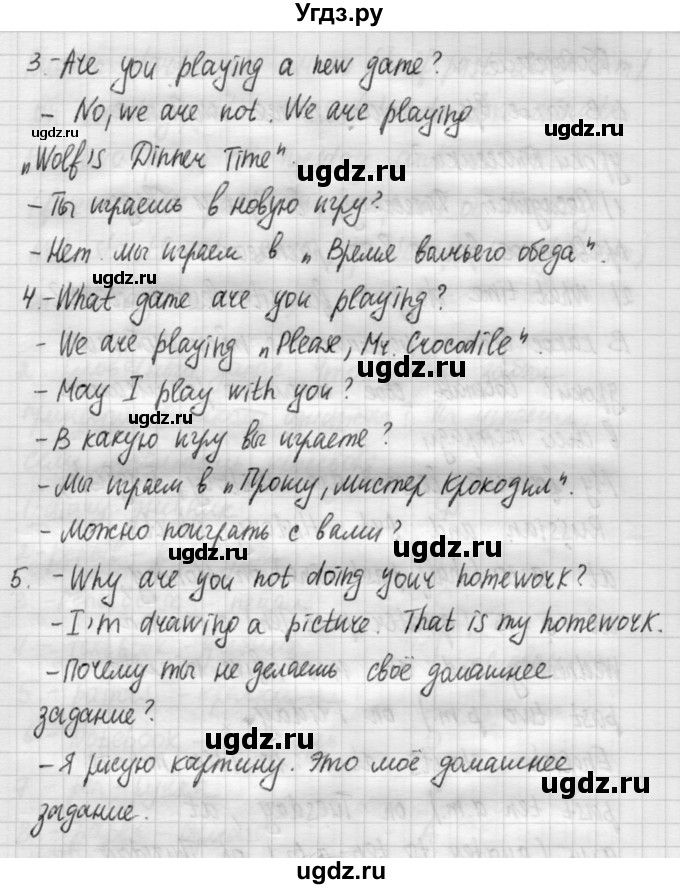 Угдз.ру
3.-Are you playing a new game?
- No, we are not. We are playing
„Wolf's Dinner Time".
- Ты играешь в новую игру?
- Нет. мы играем в „Время волчьего обеда".
4.-What game are you playing?
- We are playing „Please, Mr. Crocodile".
- May I play with you?
- В какую игру вы играете?
- Мы играем в „Прошу, мистер Крокодил".
- Можно поиграть с вами?
5. - Why are you not doing your homework?
- I'm drawing a picture. That is my homework.
- Почему ты не делаешь своё домашнее
задание?
- Я рисую картину. Это моё домашнее
задание.
ugdz.ru
ugdz.ru
ugdz.ru
ugdz.ru
ugdz.ru
ugdz.ru
ugdz.ru
ugdz.ru
ugdz.ru
ugdz.ru
ugdz.ru
ugdz.ru